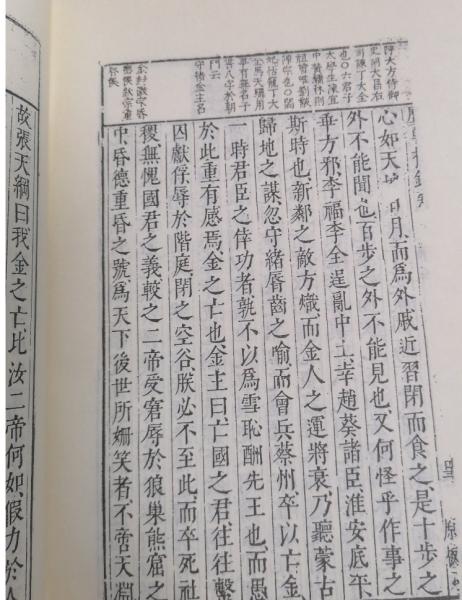 陳大方侍御
史胡大昌右
司諫丁大全
也○六君子
太學生陳宜
中黃鏞林則
祖曾唯劉黻
陳宗也○閻
妃怙寵丁大
全馬天驥用
事有無名子
書八字於朝
門云
守緒金主名
金封徽宗昏
德侯欽宗重
昏侯
心如天日月,而為外戚近習閉而食之,是十步之
外不能聞也,百步之外不能見也,又何怪乎作事之
垂方邪,李福李全逞亂中土,幸趙葵諸臣淮安底平,
斯時也,新鄰之敵方熾而金人之運將衰,乃聽蒙古
歸地之謀,忽守緒脣齒之喻,而會兵蔡州,卒以亡金
一時君臣之倖功者,孰不以為雪恥酬先王也,而愚
於此重有感焉,金之亡也,金主曰,亡國之君往往繫
囚獻俘辱於階庭,閉之空谷,朕必不至此,而卒死社
稷,無愧國君之義,較之二帝受窘辱於狼巢熊窟之
中,昏德重昏之號,為天下後世所姍笑者,不啻天淵
故張天綱曰我金之亡比汝二帝何如,假力於